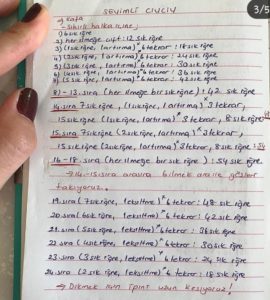 3/5
SEVİMLİ CİVCİV
→ Kafa
- Sihirli halka içine;
1) 6 sık iğne
2) her ilmeğe çift : 12 sık iğne
3) (1 sık iğne, 1 artırma) * 6 tekrar : 18 sık iğne
4) (2 sık iğne, 1 artırma) * 6 tekrar : 24 sık iğne
5) (3 sık iğne, 1 artırma) * 6 tekrar : 30 sık iğne
6) (4 sık iğne, 1 artırma) * 6 tekrar : 36 sık iğne
(5 sık iğne, 1 artırma) * 6 tekrar : 42 sık iğne
8) - 13. sıra (her ilmeğe bir sık iğne) : 42 sık iğne
14. sıra 7 sık iğne, (1 sık iğne, 1 artırma) * 3 tekrar,
15 sık iğne (1 sık iğne, 1 artırma) * 3 tekrar, 8 sık iğne
15. sıra 7 sık iğne (2 sık iğne, 1 artırma) * 3 tekrar,
15 sık iğne (2 sık iğne, 1 artırma) * 3 tekrar, 8 sık iğne : 54
16 - 18. sıra (her ilmeğe bir sık iğne) : 54 sık iğne
→ 14-15. sıra arasına ilmek arayla gözleri
takıyoruz.
19. sıra (7 sık iğne, 1 eksiltme) * 6 tekrar : 48 sık iğne
20. sıra (6 sık iğne, 1 eksiltme) * 6 tekrar : 42 sık iğne
21. sıra (5 sık iğne, 1 eksiltme) * 6 tekrar : 36 sık iğne
22. sıra (4 sık iğne, 1 eksiltme) * 6 tekrar : 30 sık iğne
23. sıra (3 sık iğne, 1 eksiltme) * 6 tekrar : 24 sık iğne
24. sıra (2 sık iğne, 1 eksiltme) * 6 tekrar : 18 sık iğne
→ Dikmek için ipini uzun kesiyoruz!